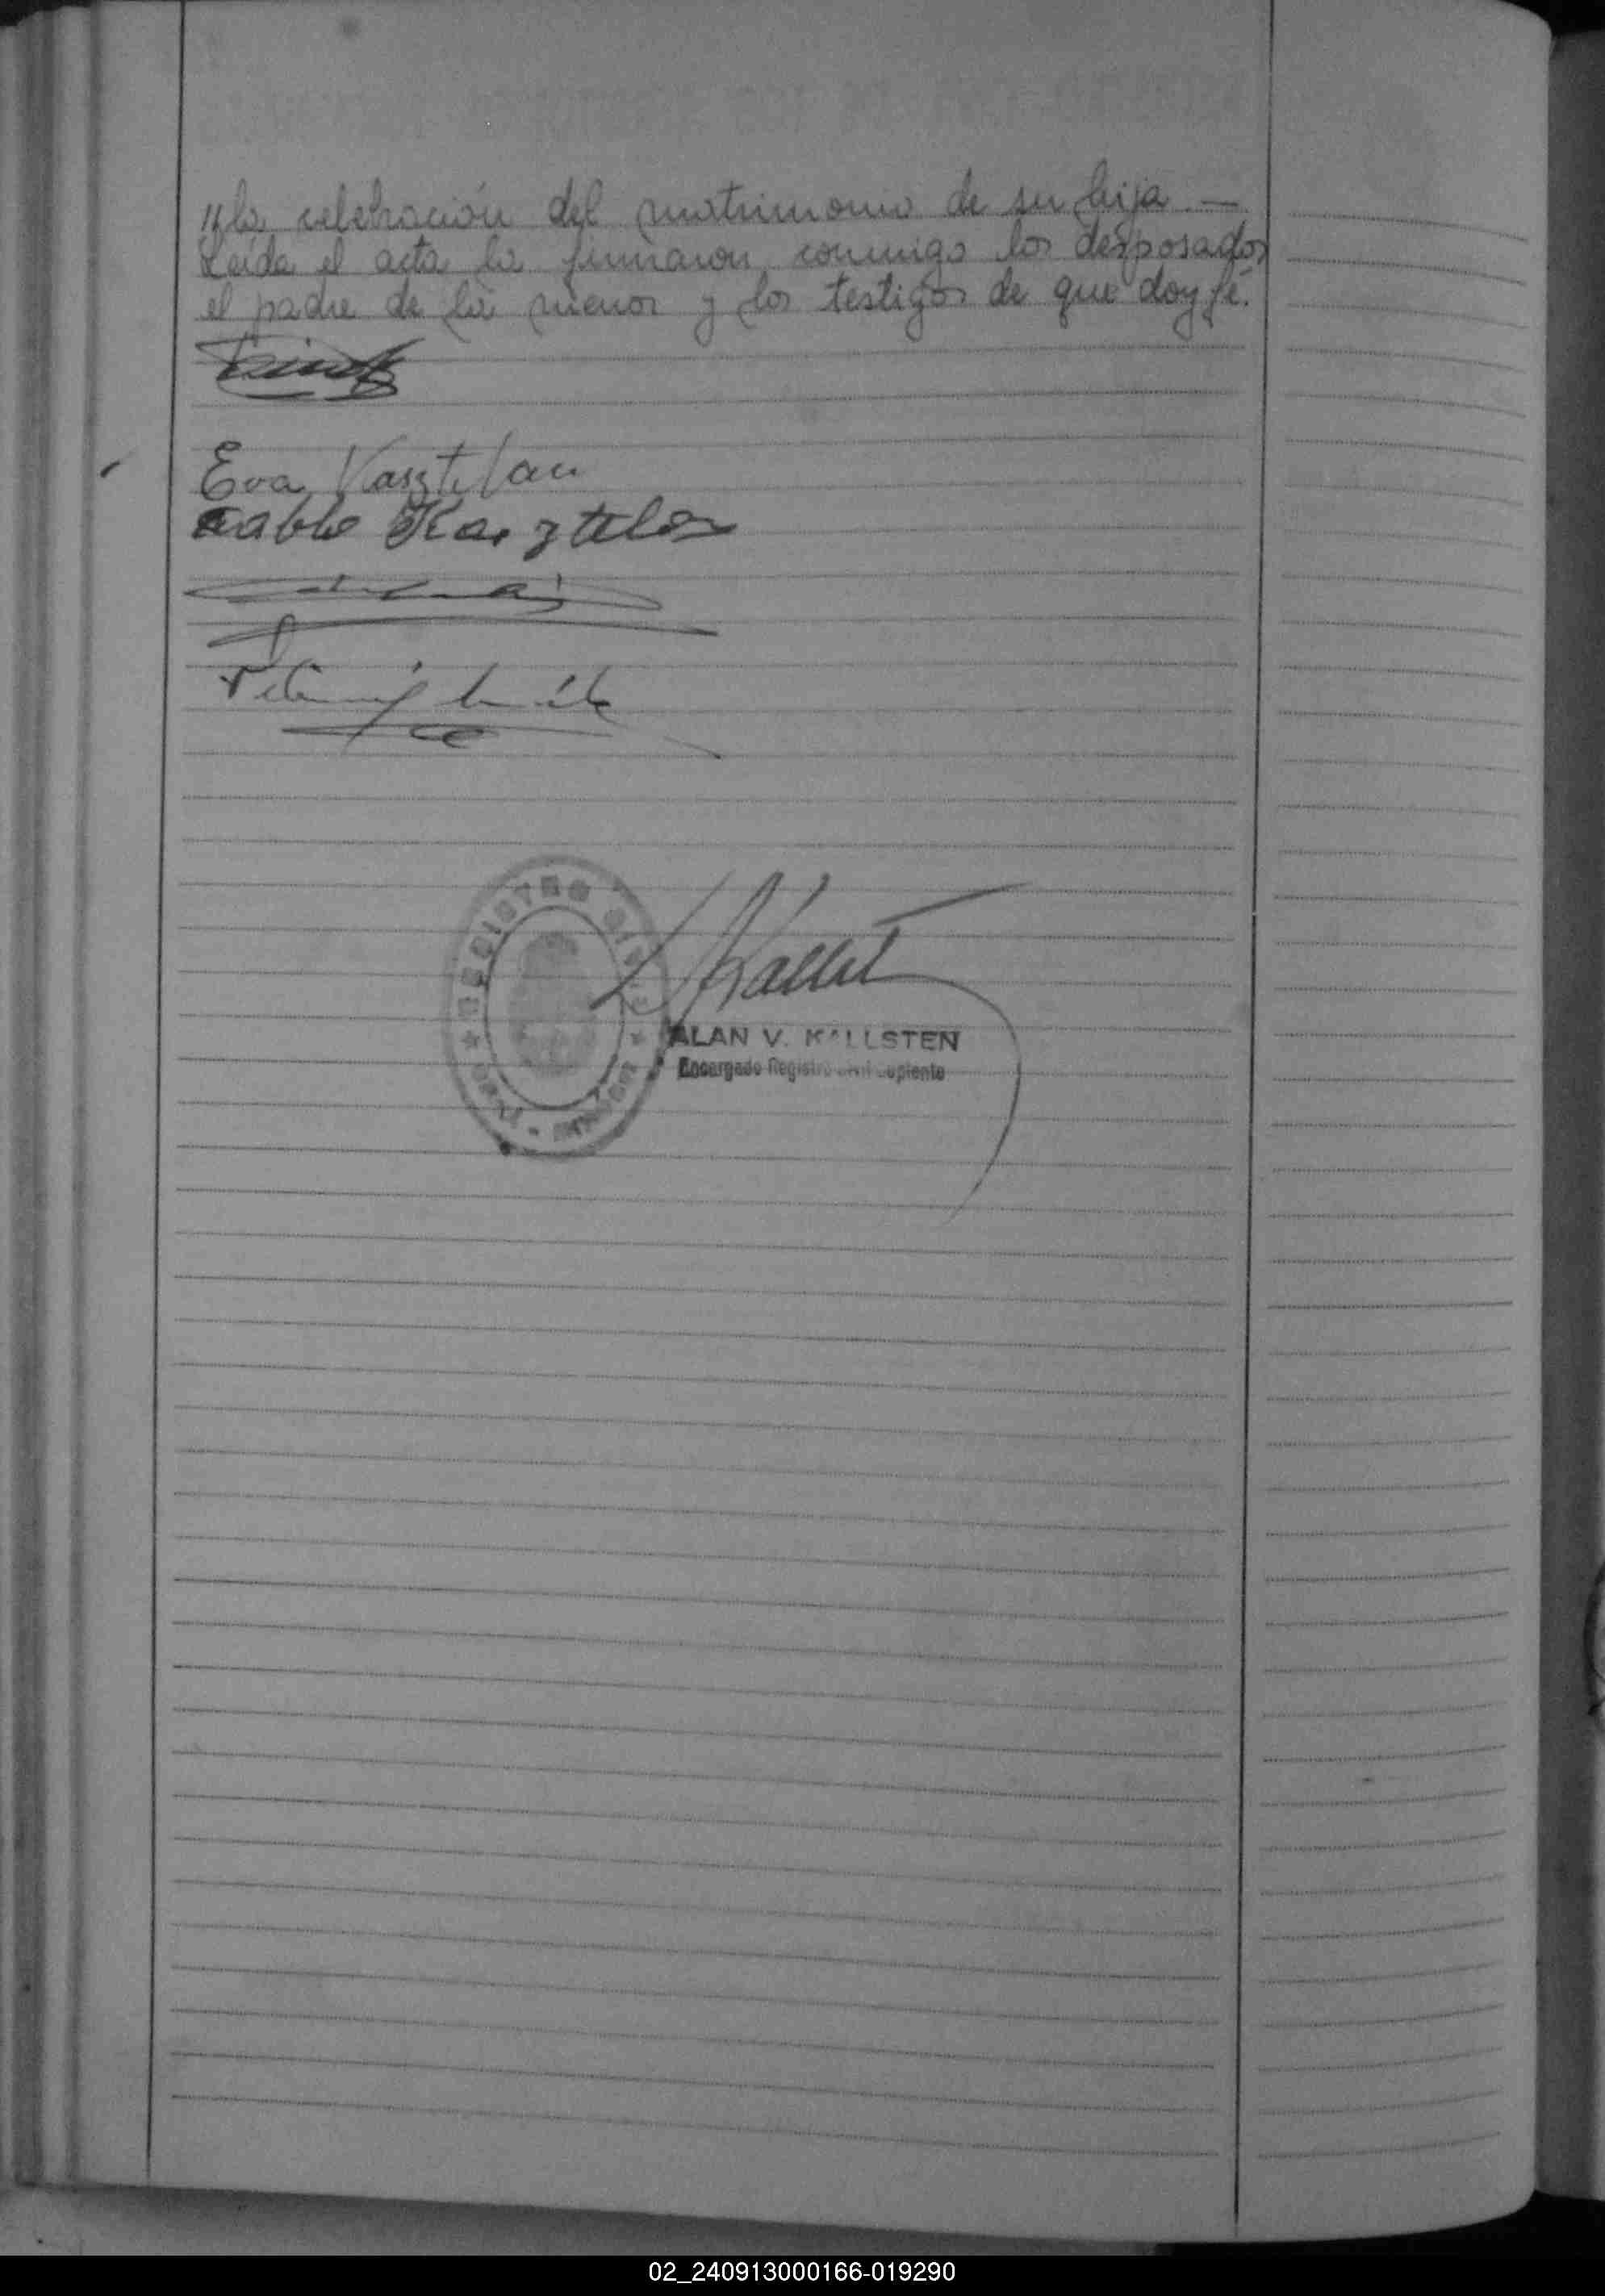 "la celebración del matrimonio de su hija —
Leída el acta la firmaron conmigo los desposados
el padre de la menor y los testigos de que doy fé.
Eva Kasztelan
Pablo Kasztelan
REGISTRO CIVIL
ALAN V. KALLSTEN
Encargado Registro Civil Suplente
02_240913000166-019290